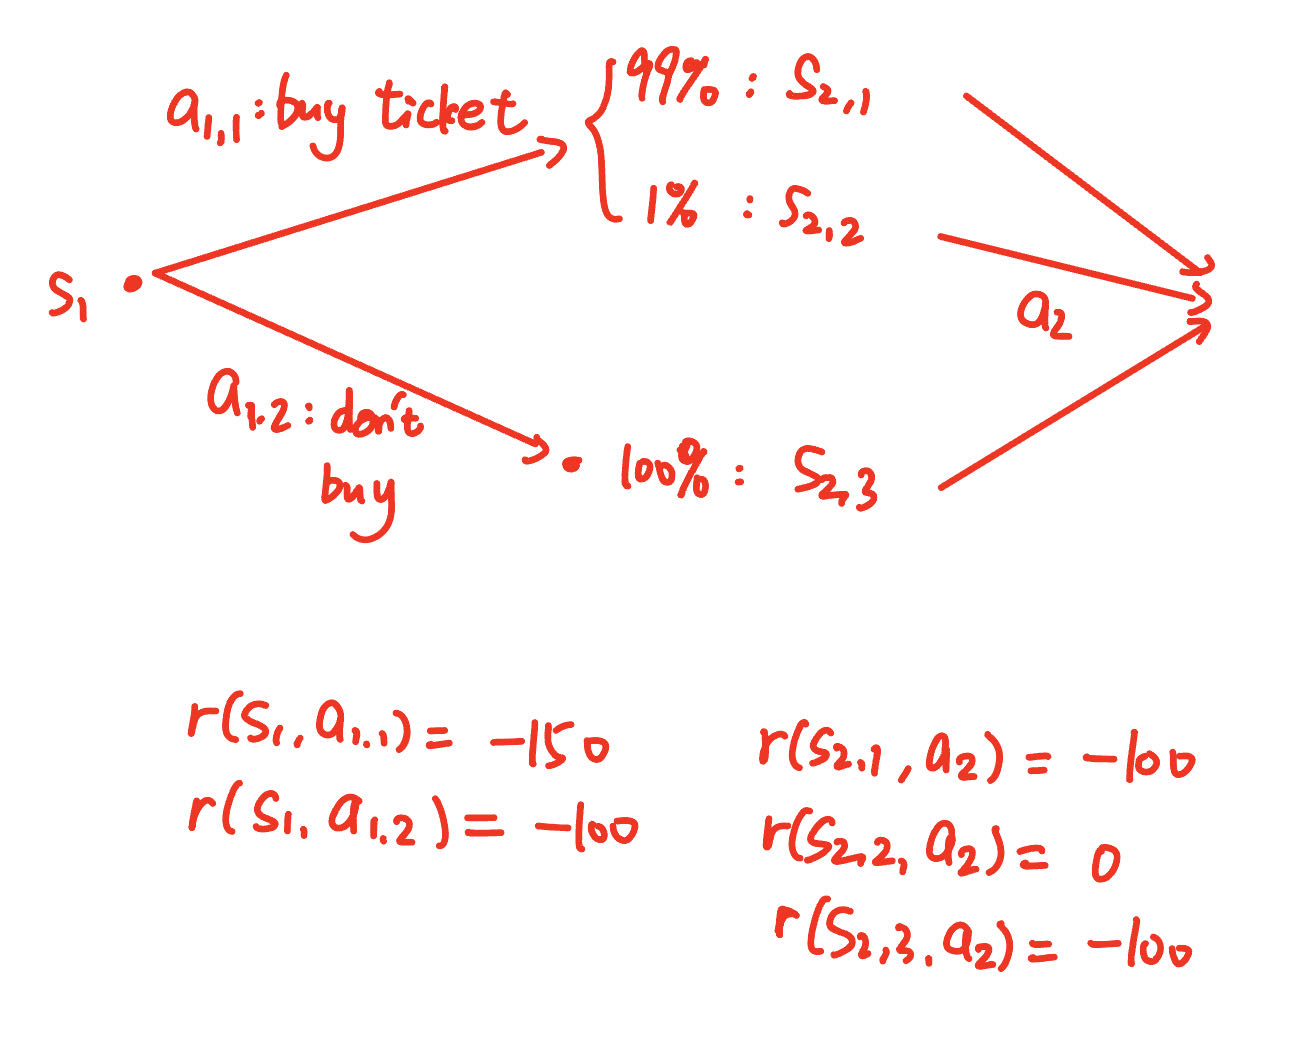 a₁,₁ : buy ticket
99% : S₂,₁
1% : S₂,₂
S₁
a₂
a₁.₂ : don't
buy
100% : S₂,₃
r(S₁, a₁.₁) = -150
r(S₁, a₁.₂) = -100
r(S₂.₁, a₂) = -100
r(S₂,₂, a₂) = 0
r(S₂,₃. a₂) = -100